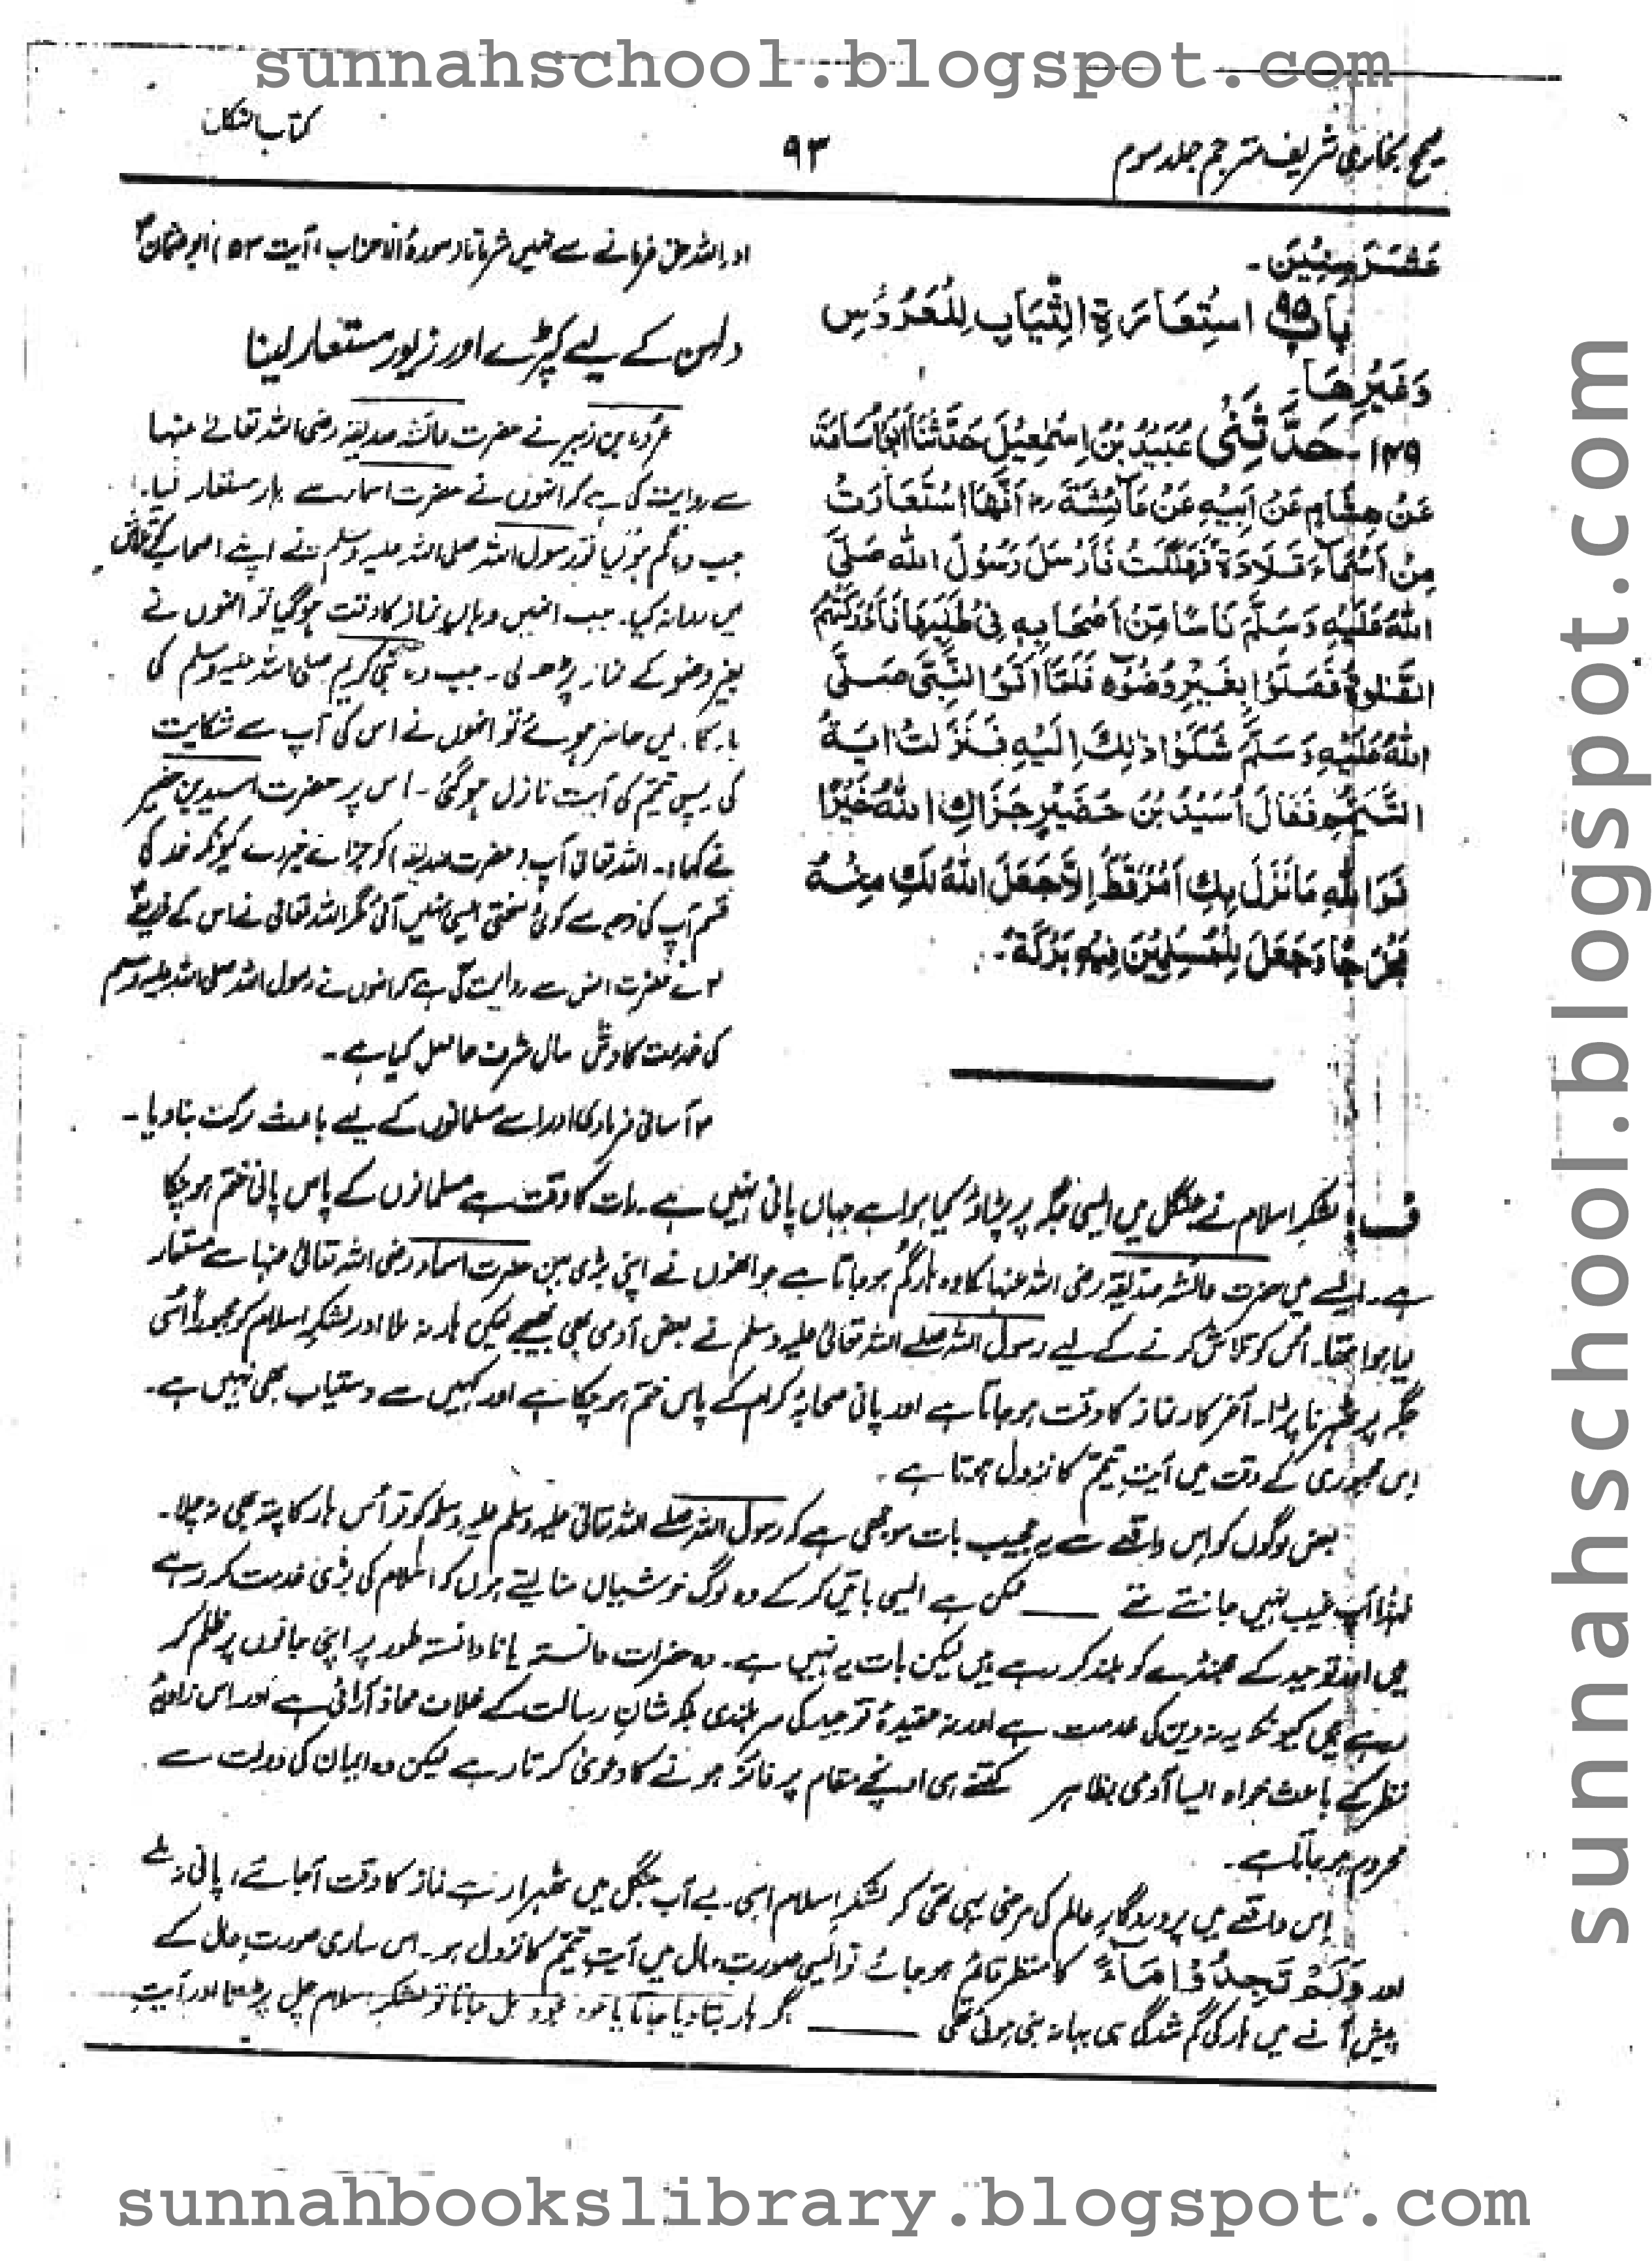 sunnahschool.blogspot.com
صحیح بخاری شریف مترجم جلد سوم
۹۳
کتاب النکاح
عَشَرَ سِنِیْنَ۔
بَابُ ۹۵ اسْتِعَارَةِ الثِّيَابِ لِلْعَرُوْسِ
وَغَيْرِهَا۔
۱۴۹۔ حَدَّثَنِیْ عُبَيْدُ بْنُ اِسْمٰعِيْلَ حَدَّثَنَا اَبُوْ اُسَامَةَ
عَنْ هِشَامٍ عَنْ اَبِيْهِ عَنْ عَائِشَةَ رض اَنَّهَا اسْتَعَارَتْ
مِنْ اَسْمَاءَ قَلَادَةً فَهَلَكَتْ فَاَرْسَلَ رَسُوْلُ اللهِ صَلَّى
اللهُ عَلَيْهِ وَسَلَّمَ نَاسًا مِّنْ اَصْحَابِهِ فِیْ طَلَبِهَا فَاَدْرَكَتْهُمُ
الصَّلٰوةُ فَصَلَّوْا بِغَيْرِ وُضُوْءٍ فَلَمَّا اَتَوُا النَّبِیَّ صَلَّى
اللهُ عَلَيْهِ وَسَلَّمَ شَكَوْا ذٰلِكَ اِلَيْهِ فَنَزَلَتْ اٰيَةُ
التَّيَمُّمِ فَقَالَ اُسَيْدُ بْنُ حُضَيْرٍ جَزَاكِ اللهُ خَيْرًا
فَوَاللهِ مَا نَزَلَ بِكِ اَمْرٌ قَطُّ اِلَّا جَعَلَ اللهُ لَكِ مِنْهُ
مَخْرَجًا وَجَعَلَ لِلْمُسْلِمِيْنَ فِيْهِ بَرَكَةً۔
اور اللہ حق فرمانے سے نہیں شرماتا (سورۂ الاحزاب، آیت ۵۳) ابو عثمان
دلہن کے لیے کپڑے اور زیور مستعار لینا
عروہ بن زبیر نے حضرت عائشہ صدیقہ رضی اللہ تعالےٰ عنہا
سے روایت کی ہے کہ انہوں نے حضرت اسماء سے ہار مستعار لیا۔
جب وہ گم ہو گیا تو رسول اللہ صلی اللہ علیہ وسلم نے اپنے اصحاب کو تلاش
میں روانہ کیا۔ جب انہیں وہاں نماز کا وقت ہوگیا تو انہوں نے
بغیر وضو کے نماز پڑھ لی۔ جب وہ نبی کریم صلی اللہ علیہ وسلم کی
بارگاہ میں حاضر ہوئے تو انہوں نے اس کی آپ سے شکایت
کی پس تیمّم کی آیت نازل ہوگئی۔ اس پر حضرت اسید بن حضیر
نے کہا:۔ اللہ تعالیٰ آپ (حضرت صدیقہ) کو جزائے خیر دے کیونکہ خدا کی
قسم آپ کی وجہ سے کوئی سختی ایسی نہیں آئی مگر اللہ تعالیٰ نے اس کے ذریعے
نے حضرت انس سے روایت کی ہے کہ انہوں نے رسول اللہ صلی اللہ علیہ وسلم
کی خدمت کا دس سال شرف حاصل کیا ہے۔
آسانی فرما دی اور اسے مسلمانوں کے لیے باعث برکت بنا دیا۔
ف: لشکرِ اسلام نے جنگل میں ایسی جگہ پر پڑاؤ کیا ہوا ہے جہاں پانی نہیں ہے۔ رات کا وقت ہے مسلمانوں کے پاس پانی ختم ہو چکا
ہے۔ ایسے میں حضرت عائشہ صدیقہ رضی اللہ عنہا کا وہ ہار گم ہو جاتا ہے جو انہوں نے اپنی بڑی بہن حضرت اسماء رضی اللہ تعالیٰ عنہا سے مستعار
لیا ہوا تھا۔ اُس کو تلاش کرنے کے لیے رسول اللہ صلے اللہ تعالیٰ علیہ وسلم نے بعض آدمی بھی بھیجے لیکن ہار نہ ملا اور لشکرِ اسلام کو مجبوراً اُسی
جگہ پر ٹھہرنا پڑا۔ آخر کار نماز کا وقت ہو جاتا ہے اور پانی صحابۂ کرام کے پاس ختم ہو چکا ہے اور کہیں سے دستیاب بھی نہیں ہے۔
اس مجبوری کے وقت میں آیتِ تیمّم کا نزول ہوتا ہے۔
بعض لوگوں کو اس واقعے سے یہ عجیب بات سوجھی ہے کہ رسول اللہ صلے اللہ تعالیٰ علیہ وسلم علیہ وسلم کو تو اُس ہار کا پتہ بھی نہ چلا۔
لہٰذا آپ غیب نہیں جانتے تھے ـــــ ممکن ہے ایسی باتیں کر کے وہ لوگ خوشیاں منا لیتے ہوں کہ اسلام کی بڑی خدمت کر رہے
ہیں اور توحید کے جھنڈے کو بلند کر رہے ہیں لیکن بات یہ نہیں ہے۔ وہ حضرات دانستہ یا نادانستہ طور پر اپنی جانوں پر ظلم کر
رہے ہیں کیونکہ یہ نہ دین کی خدمت ہے اور نہ عقیدۂ توحید کی سر بلندی بلکہ شانِ رسالت کے خلاف محاذ آرائی ہے اور اس زاویۂ
نظر کے باعث خواہ ایسا آدمی بظاہر کتنے ہی اونچے مقام پر فائز ہونے کا دعویٰ کرتا رہے لیکن وہ ایمان کی دولت سے
محروم ہو جاتا ہے۔
اِس واقعے میں پروردگارِ عالم کی مرضی یہی تھی کہ لشکرِ اسلام اسی بے آب جنگل میں ٹھہرا رہے نماز کا وقت آجائے، پانی نہ ملے
اور وَلَمْ تَجِدُوْا مَاءً کا منظر قائم ہو جائے تو ایسی صورتِ حال میں آیتِ تیمّم کا نزول ہو۔ اس ساری صورتِ حال کے
پیش آنے میں ہار کی گم شدگی ہی بہانہ بنی ہوئی تھی ـــــ اگر ہار بتا دیا جاتا یا وہ خود مل جاتا تو لشکرِ اسلام چل پڑتا اور آیتِ
sunnahbookslibrary.blogspot.com
sunnahschool.blogspot.com